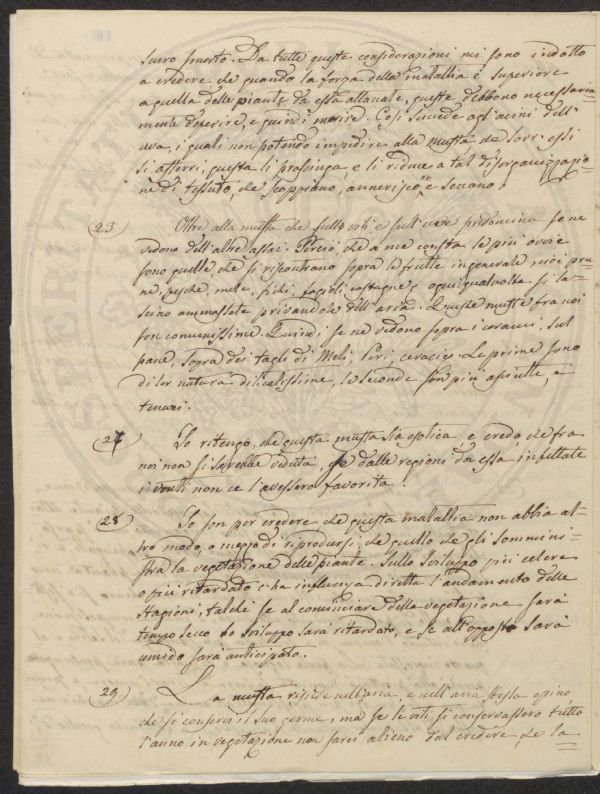 scuro smorto. Da tutte queste considerazioni mi sono indotto
a credere che quando la forza della malattia è superiore
a quella delle piante da essa attaccate, queste debbono necessaria=
mente deperire, e quindi morire. Così succede agl'acini dell'
uva, i quali non potendo impedire alla muffa che sovr'essi
si afferri, questa li prosciuga, e li riduce a tal disorganizzazio=
ne di tessuto, che scoppiano, anneriscono e seccano.
23 Oltre alla muffa che sulle viti e sull'uve predomina se ne
vedono dell'altre assai. Perciò, che a me consta le più ovvie
sono quelle, che si riscontrano sopra le frutte in generale cioè pru=
ne, pesche, mele, fichi, fagioli castagne, ogni qualvolta si la=
scino ammassate privandole dell'aria. Queste muffe fra noi
son comunissime. Quindi se ne vedono sopra i cocomeri, sul
pane, sopra dei tagli di Meli, Peri, Le prime sono
di lor natura dilicatissime, le seconde son più asciutte, e
tenaci.
27 Io ritengo, che questa muffa sia esotica, e credo che fra
noi non si sarebbe veduta, se dalle regioni da essa infettate
i venti non ce l'avessero favorita.
28 Io son per credere che questa malattia non abbia al=
tro modo, o mezzo di riprodursi, che quello che gli sommini=
stra la vegetazione delle piante. Sullo sviluppo più celere
o più ritardato c'ha influenza diretta l'andamento delle
stagioni, talchè se al cominciare della vegetazione sarà
tempo secco lo sviluppo sarà ritardato, e se all'opposto sarà
umido sarà anticipato.
29 La muffa risiede nell'aria, e nell'aria stessa opino,
che si conservi il suo germe, ma se le viti si conservassero tutto
l'anno in vegetazione non sarei alieno dal credere, che la=